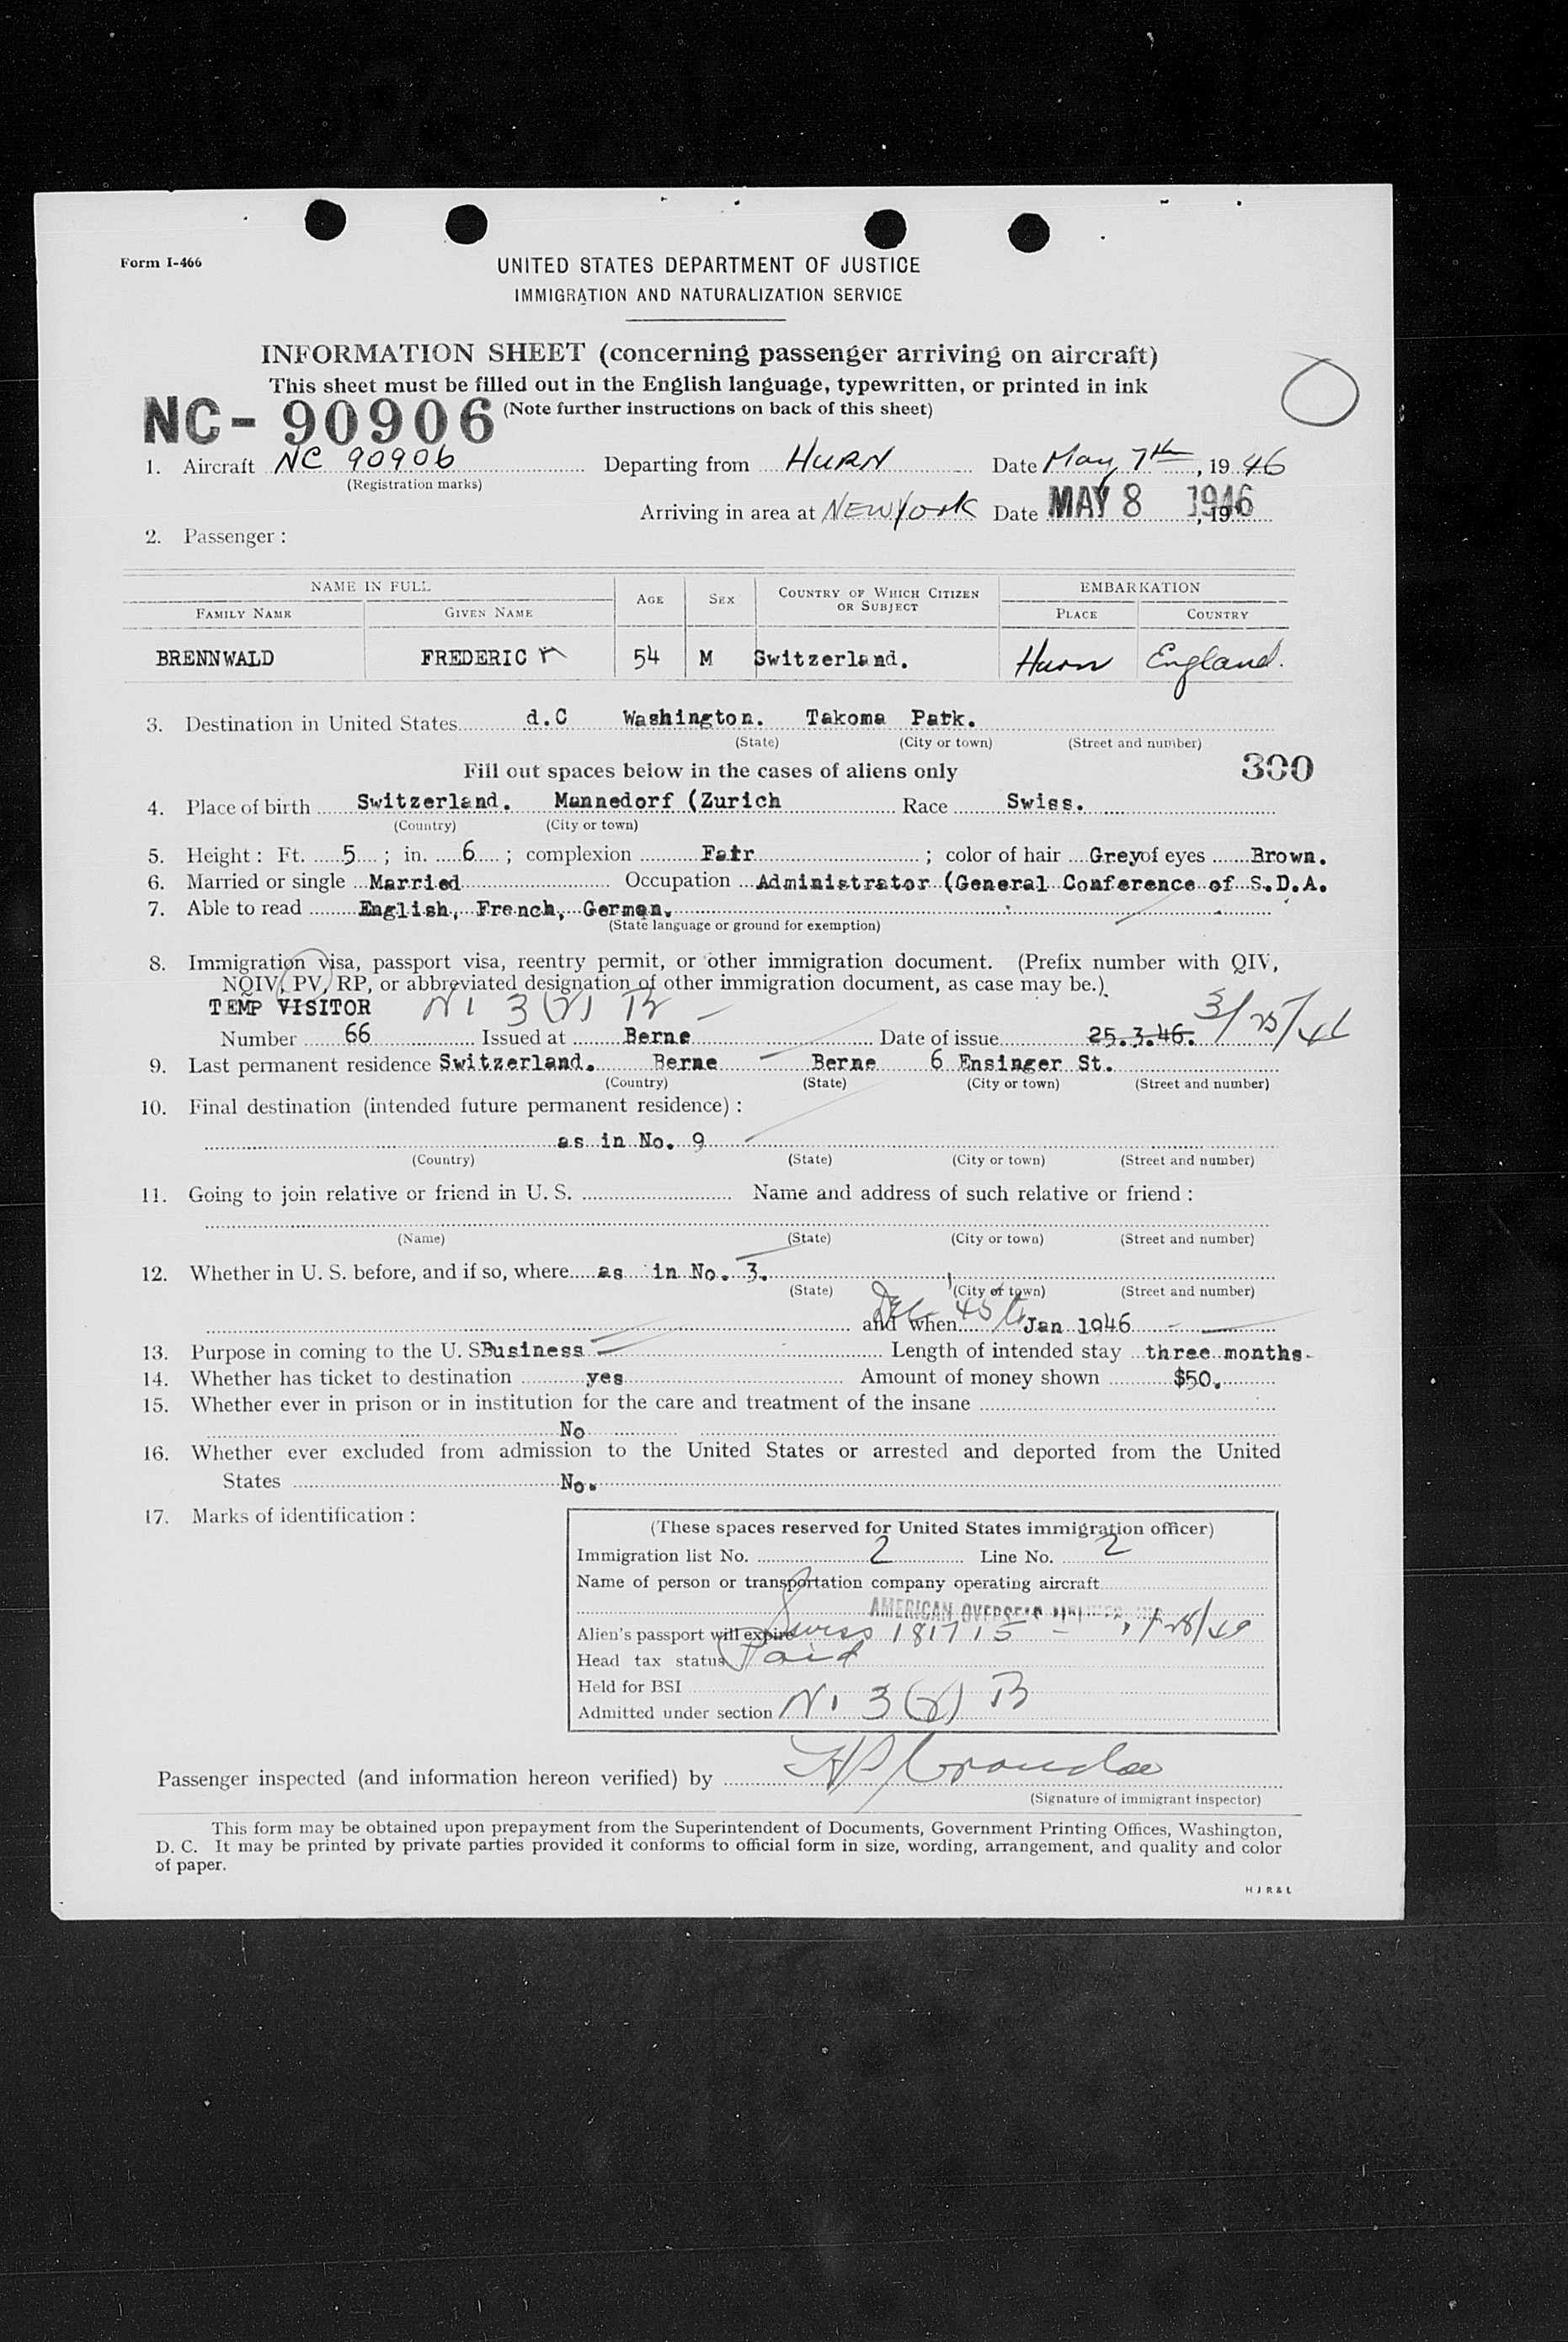 Form I-466
UNITED STATES DEPARTMENT OF JUSTICE
IMMIGRATION AND NATURALIZATION SERVICE
INFORMATION SHEET (concerning passenger arriving on aircraft)
This sheet must be filled out in the English language, typewritten, or printed in ink
NC-90906 (Note further instructions on back of this sheet)
1. Aircraft NC 90906 Departing from HURN Date May 7th, 1946
(Registration marks)
Arriving in area at NEW YORK Date MAY 8 1946, 19
2. Passenger:
NAME IN FULL EMBARKATION
FAMILY NAME GIVEN NAME AGE SEX COUNTRY OF WHICH CITIZEN OR SUBJECT PLACE COUNTRY
BRENNWALD FREDERIC 54 M Switzerland. Hurn England.
3. Destination in United States d.C Washington. Takoma Park.
(State) (City or town) (Street and number)
Fill out spaces below in the cases of aliens only 300
4. Place of birth Switzerland. Mannedorf (Zurich Race Swiss.
(Country) (City or town)
5. Height: Ft. 5; in. 6; complexion Fair; color of hair Grey of eyes Brown.
6. Married or single Married Occupation Administrator (General Conference of S.D.A.
7. Able to read English, French, German.
(State language or ground for exemption)
8. Immigration visa, passport visa, reentry permit, or other immigration document. (Prefix number with QIV,
NQIV, PV, RP, or abbreviated designation of other immigration document, as case may be.)
TEMP VISITOR N1 3(2) B 3/25/46
Number 66 Issued at Berne Date of issue 25.3.46.
9. Last permanent residence Switzerland. Berne Berne 6 Ensinger St.
(Country) (State) (City or town) (Street and number)
10. Final destination (intended future permanent residence):
as in No. 9
(Country) (State) (City or town) (Street and number)
11. Going to join relative or friend in U. S. Name and address of such relative or friend:
(Name) (State) (City or town) (Street and number)
12. Whether in U. S. before, and if so, where as in No. 3.
(State) (City or town) (Street and number)
and when Dec 45 to Jan 1946
13. Purpose in coming to the U. S. Business Length of intended stay three months
14. Whether has ticket to destination yes Amount of money shown $50.
15. Whether ever in prison or in institution for the care and treatment of the insane
No
16. Whether ever excluded from admission to the United States or arrested and deported from the United
States No.
17. Marks of identification:
(These spaces reserved for United States immigration officer)
Immigration list No. 2 Line No. 2
Name of person or transportation company operating aircraft
AMERICAN OVERSEAS
Alien's passport will expire Swiss 181715
Head tax status Paid
Held for BSI
Admitted under section N1 3(2) B
Passenger inspected (and information hereon verified) by
(Signature of immigrant inspector)
This form may be obtained upon prepayment from the Superintendent of Documents, Government Printing Offices, Washington,
D. C. It may be printed by private parties provided it conforms to official form in size, wording, arrangement, and quality and color
of paper.
H J R & L